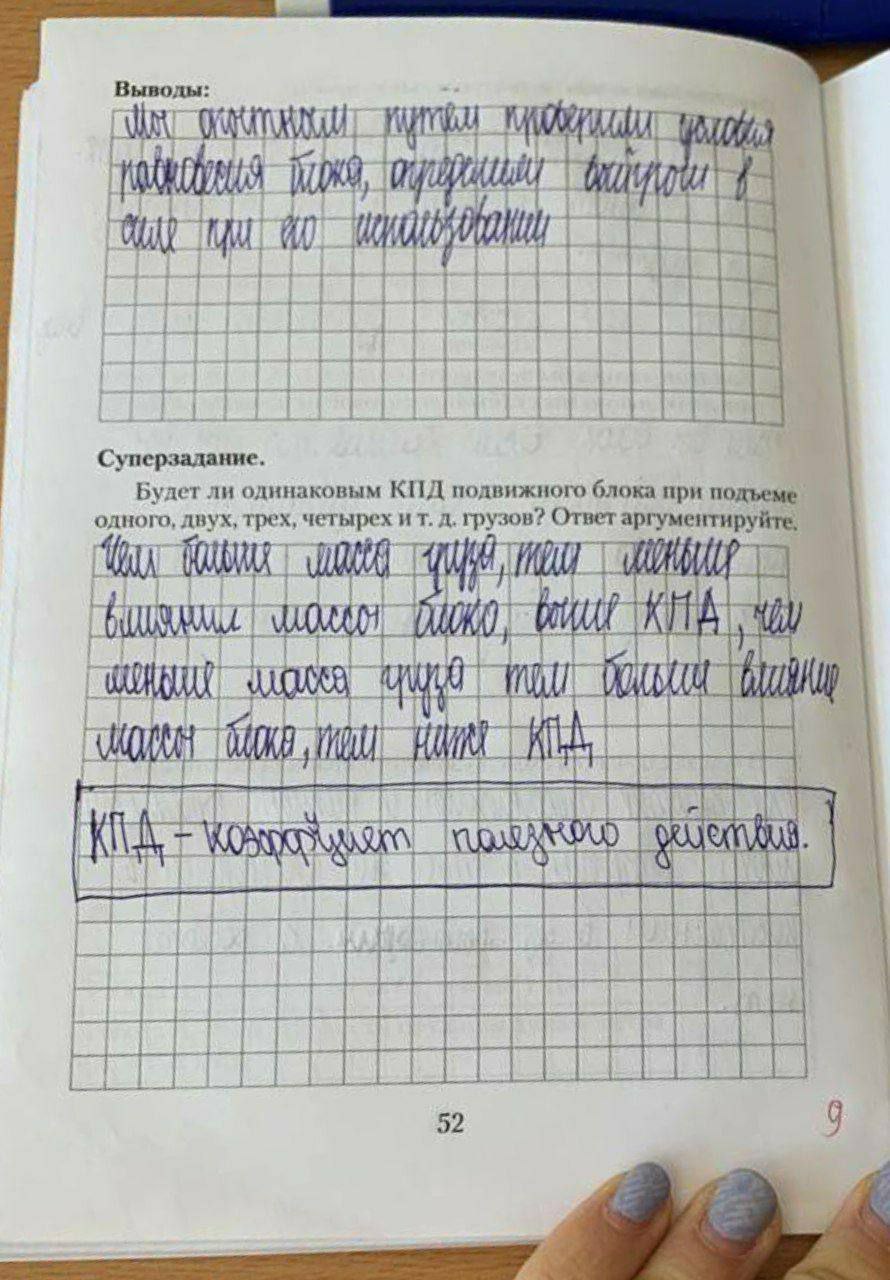 Выводы:
Мы опытным путем проверили условия
равновесия блока, определили выигрыш в
силе при его использовании
Суперзадание.
Будет ли одинаковым КПД подвижного блока при подъеме
одного, двух, трех, четырех и т. д. грузов? Ответ аргументируйте.
Чем больше масса груза, тем меньше
влияния массы блока, выше КПД, чем
меньше масса груза тем больше влияние
массы блока, тем ниже КПД
КПД – коэффициент полезного действия.
52
9